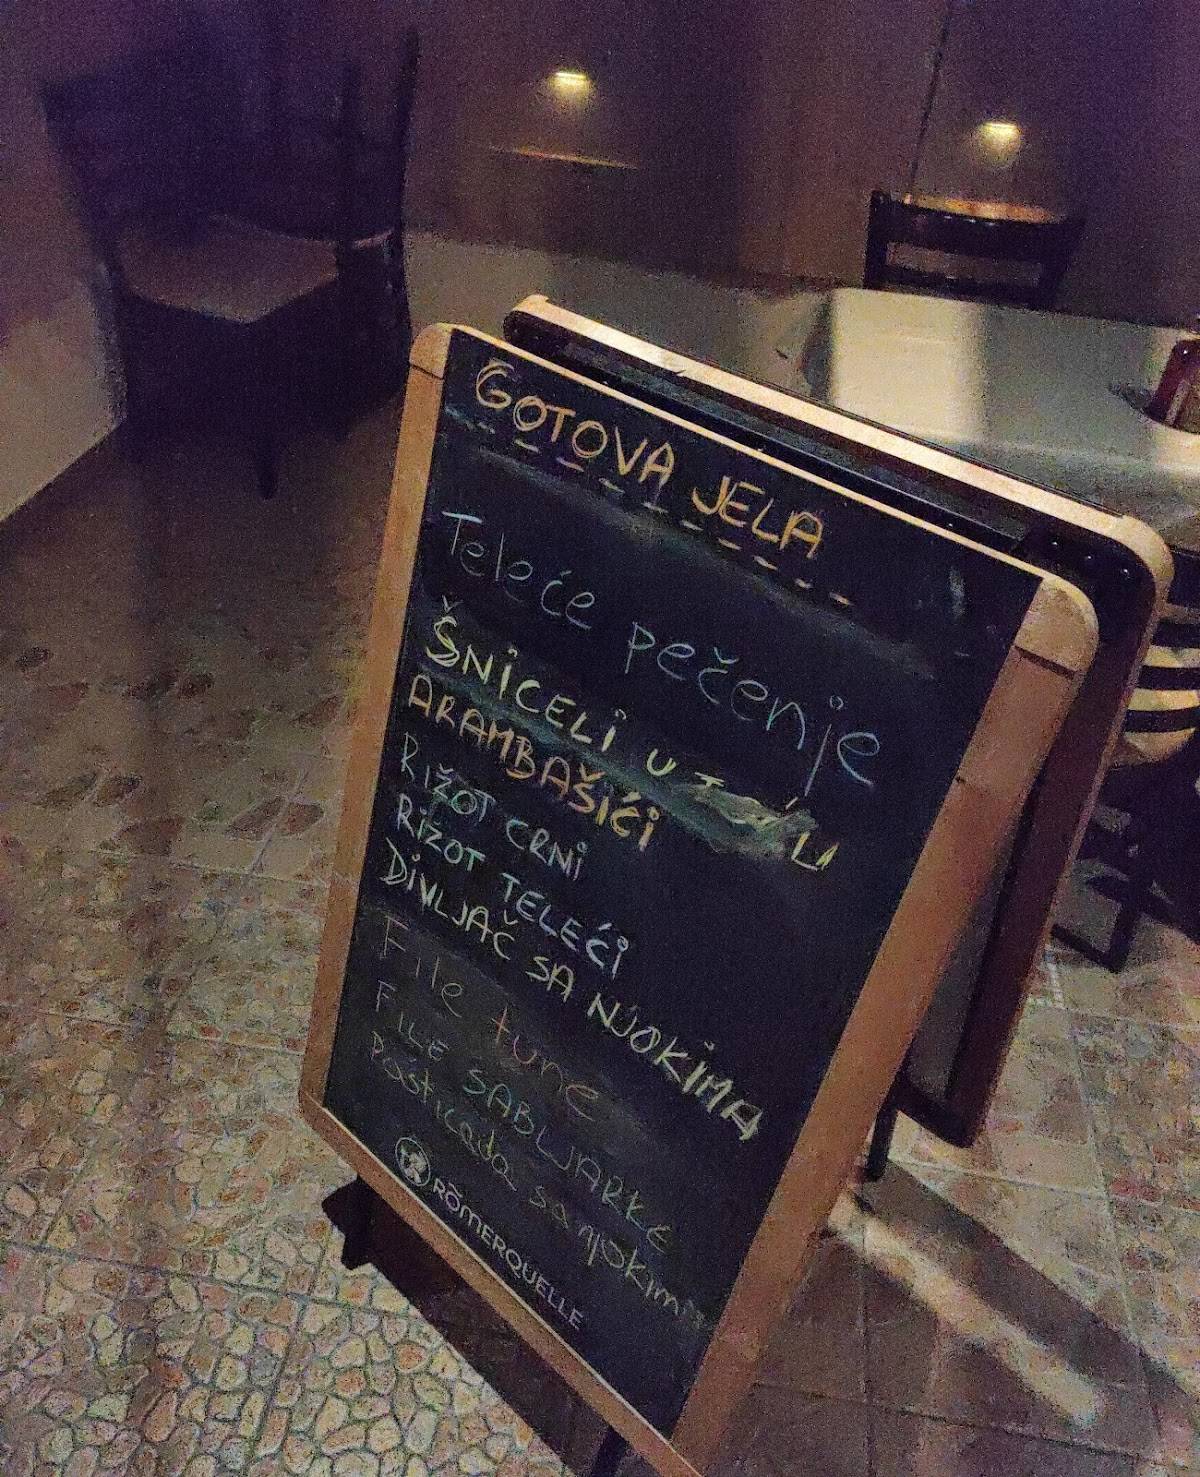 GOTOVA JELA
Teleće pečenje
ŠNICELI U
ARAMBAŠIĆI
RIŽOT CRNI
RIZOT TELEĆI
DIVLJAČ SA NJOKIMA
File tune
FILE SABLJARKE
Pasticada sa njokima
RÖMERQUELLE